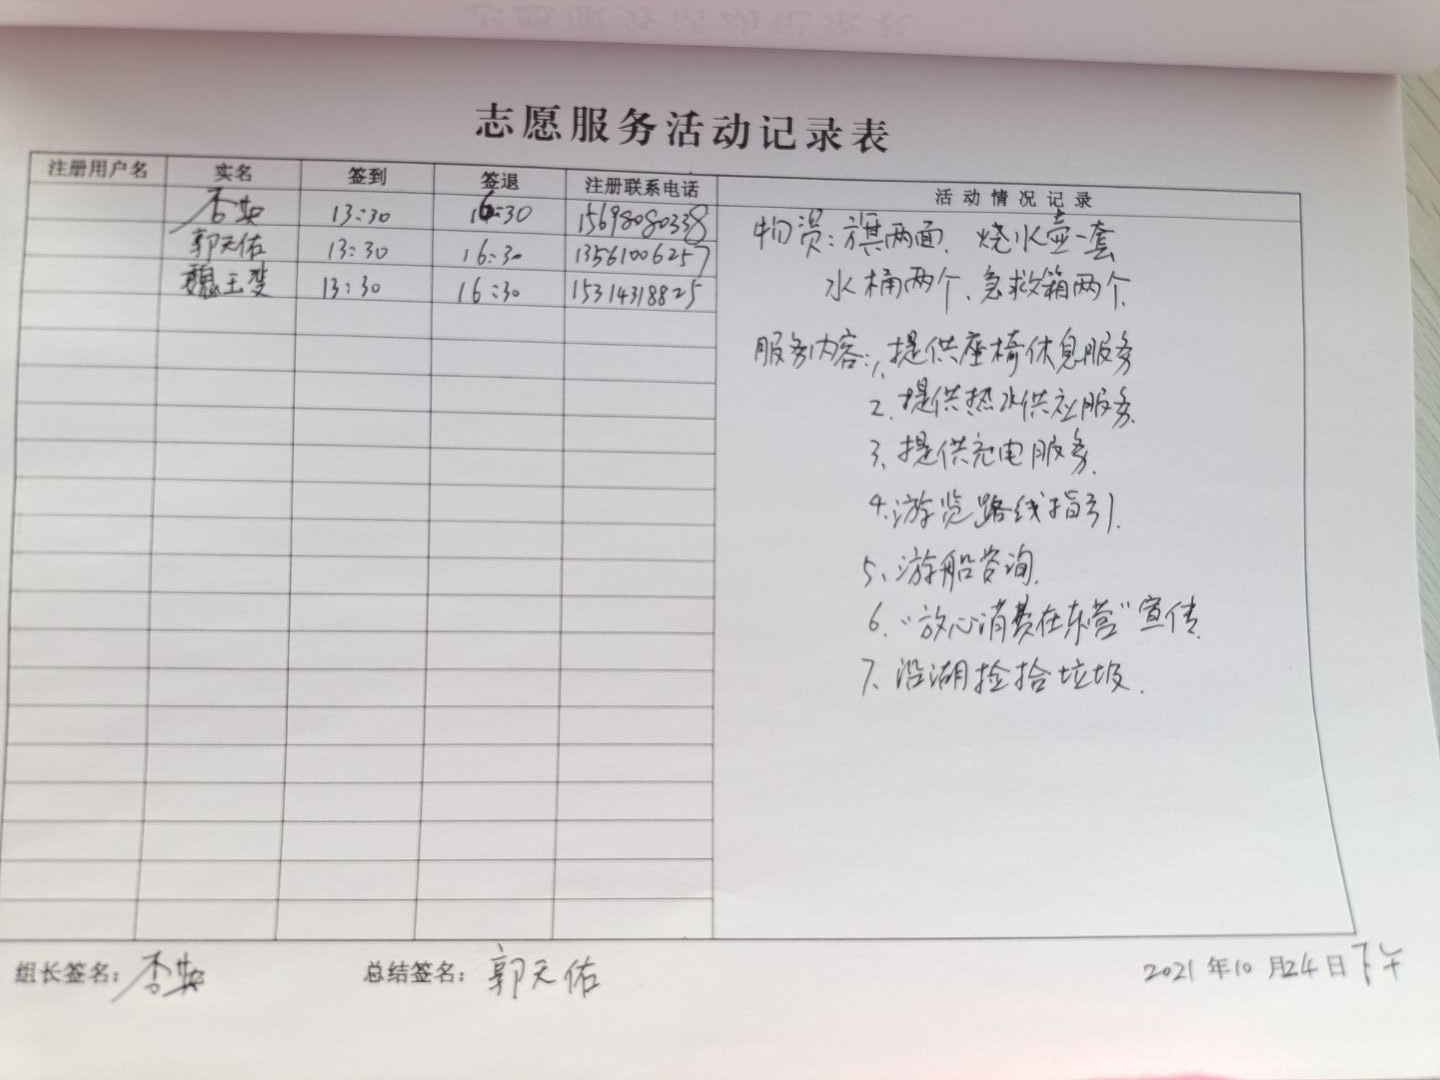 志愿服务活动记录表
注册用户名 实名 签到 签退 注册联系电话 活动情况记录
13:30 16:30 15698080338
郭天佑 13:30 16:30 13561006257
魏玉斐 13:30 16:30 15314318825
物资:旗两面、烧水壶一套
水桶两个、急救箱两个
服务内容:1、提供座椅休息服务
2、提供热水供应服务.
3、提供充电服务.
4、游览路线指引.
5、游船咨询.
6、"放心消费在东营"宣传.
7、沿湖捡拾垃圾.
组长签名: 总结签名:郭天佑 2021年10月24日下午